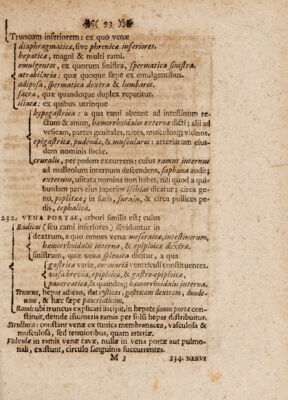 93
Truncum inferiorem: ex quo venæ
diaphragmaticæ, sive phrenicæ inferiores.
hepaticæ, magni & multi rami.
emulgentes, ex quorum sinistra, spermatica sinistra.
atrabilariæ: quæ quoque sæpe ex emulgentibus.
adiposa, spermatica dextra & lumbares.
sacra, quæ quandoque duplex reperitur.
iliacæ: ex quibus utrinque
hypogastrica: a qua rami abeunt ad intestinum rectum
& anum, hæmorrhoidales externæ dicti; alii ad
vesicam, partes genitales, nates, musculosq; vicinos.
epigastrica, pudenda, & musculares: arteriarum ejusdem
nominis sociæ.
cruralis, per pedem excurrens: cujus ramus internus
ad malleolum internum descendens, saphena audit;
externus, usitata nomina non habet, nisi quod a quibusdam
pars ejus superior ischias dicatur; circa genu,
poplitæa; in suris, suralis, & circa pollices pedis,
cephalica.
232. VENA PORTAE, arbori similis est; cujus
Radices (seu rami inferiores) dividuntur in
dextrum, a quo omnes venæ meseraicæ, intestinorum,
hæmorrhoidalis interna, & epiploica dextra.
sinistrum, quæ vena splenica dicitur, a qua
gastrica varia, coronaria ventriculi constituentes.
vasa brevia, epiploicæ, & gastro-epiploicæ,
pancreaticæ, & quandoq; hæmorrhoidalis interna.
Truncus, hepar adiens, dat cysticas, gastricam dextram, duodenum,
& hæc sæpe pancreaticam.
Rami: ubi truncus explicari incipit, in hepate sinum portæ constituit,
deinde innumeris ramis per totum hepar distribuitur.
Structura: constant venæ ex tunica membranacea, vasculosa &
musculosa, sed tenuioribus, quam arteriæ.
Valvulæ in ramis venæ cavæ, nullæ in vena portæ aut pulmonali,
existunt, circulo sanguinis succurrentes.
M 3
234. NERVI